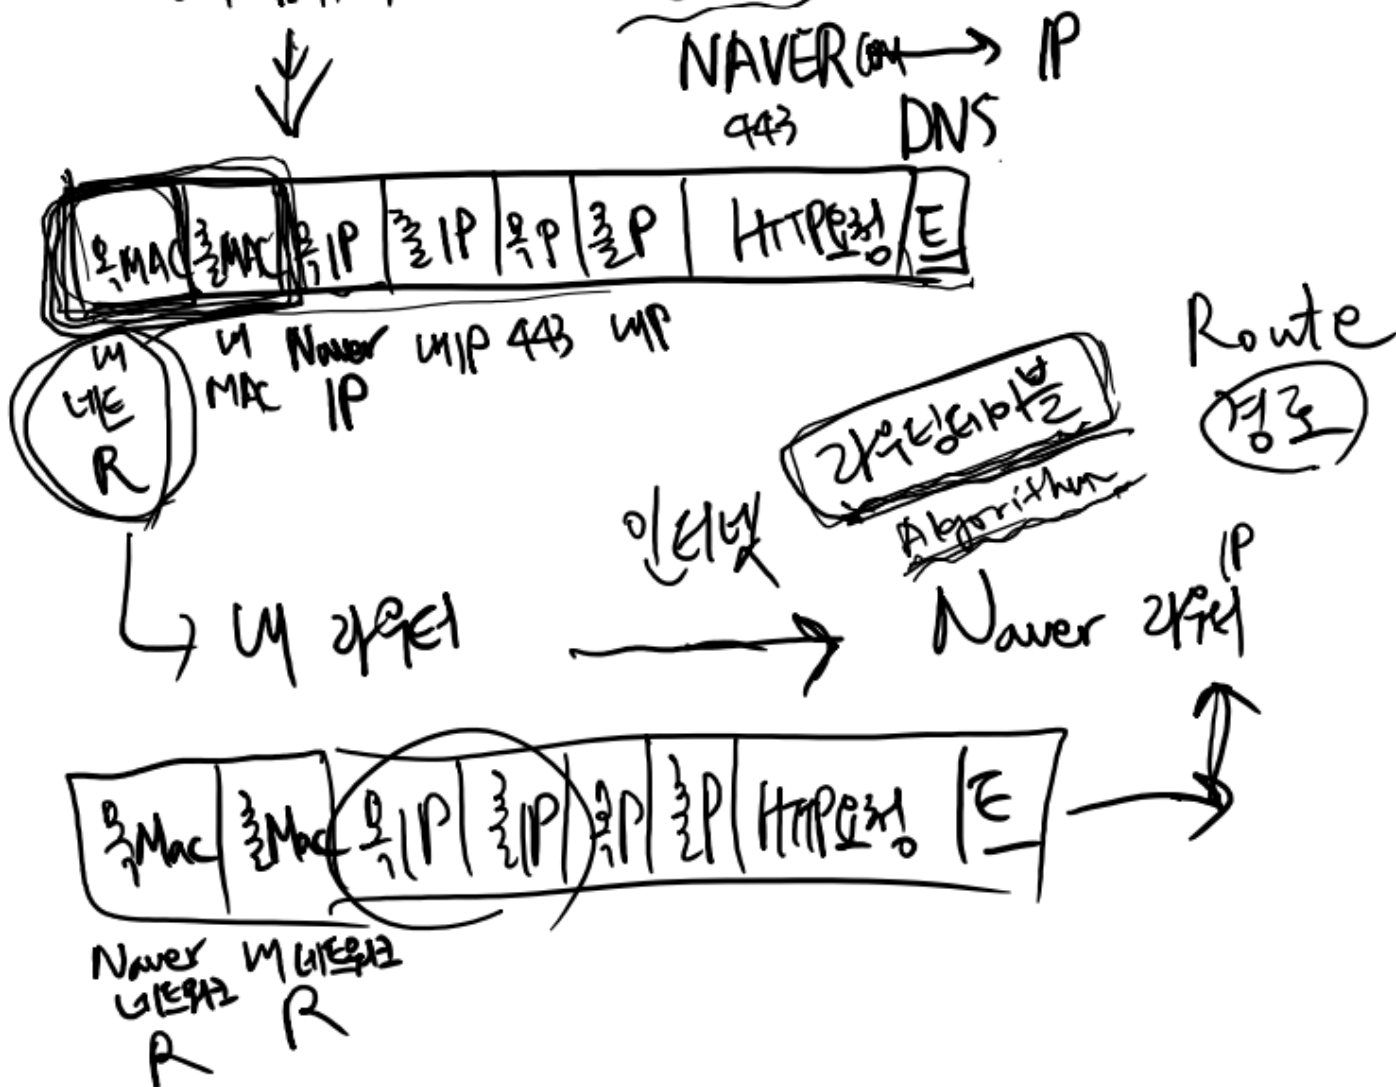 NAVER.com → IP
443 DNS
목MAC 출MAC 목IP 출IP 목P 출P HTTP요청 E
내 네트 R
내 MAC
Naver IP
내IP 443 내P
Route
경로
라우팅테이블
Algorithm
인터넷
내 라우터 → Naver 라우터
IP
목Mac 출Mac 목IP 출IP 목P 출P HTTP요청 E
Naver 네트워크 R
내 네트워크 R